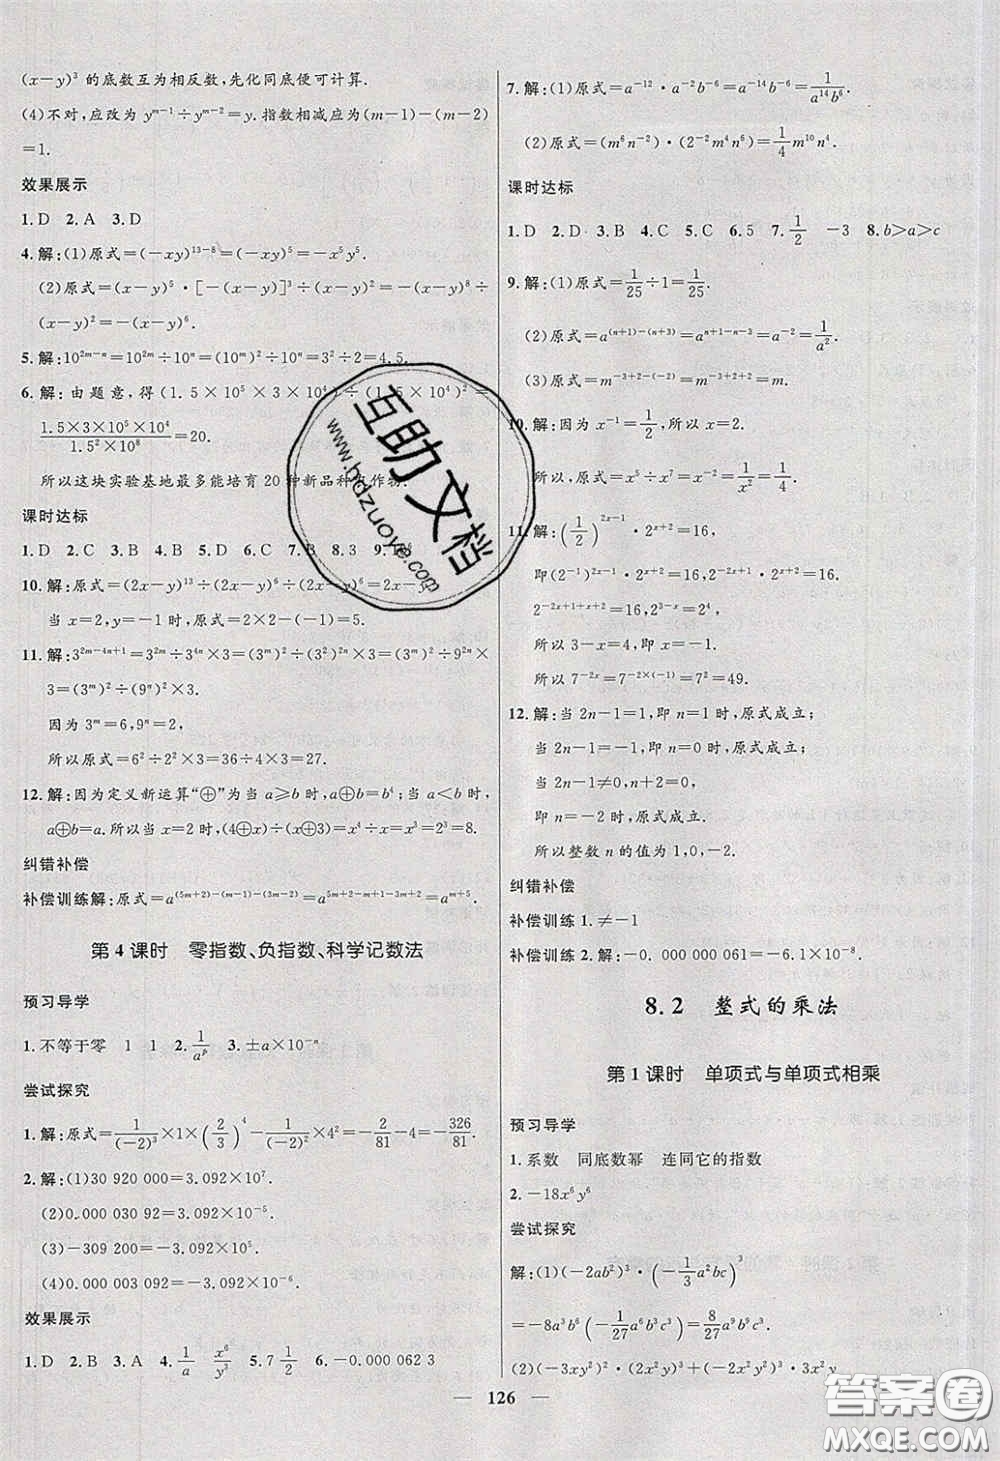 (x－y)³ 的底数互为相反数,先化同底便可计算.
(4)不对,应改为 yᵐ⁻¹÷yᵐ⁻²=y.指数相减应为(m－1)－(m－2)
=1.
效果展示
1.D 2.A 3.D
4.解:(1)原式=(－xy)¹³⁻⁸=(－xy)⁵=－x⁵y⁵.
(2)原式=(x－y)⁵·[－(x－y)]³÷(x－y)²=－(x－y)⁸÷
(x－y)²=－(x－y)⁶.
5.解:10²ᵐ⁻ⁿ=10²ᵐ÷10ⁿ=(10ᵐ)²÷10ⁿ=3²÷2=4.5.
6.解:由题意,得(1.5×10⁵×3×10⁴)÷(1.5×10⁴)²=
1.5×3×10⁵×10⁴/1.5²×10⁸=20.
所以这块实验基地最多能培育20种新品种农作物.
课时达标
1.D 2.C 3.B 4.B 5.D 6.C 7.B 8.3 9.
10.解:原式=(2x－y)¹³÷(2x－y)⁶÷(2x－y)⁶=2x－y.
当 x=2,y=－1时,原式=2×2－(－1)=5.
11.解:3²ᵐ⁻⁴ⁿ⁺¹=3²ᵐ÷3⁴ⁿ×3=(3ᵐ)²÷(3²)²ⁿ×3=(3ᵐ)²÷9²ⁿ×
3=(3ᵐ)²÷(9ⁿ)²×3.
因为 3ᵐ=6,9ⁿ=2,
所以原式=6²÷2²×3=36÷4×3=27.
12.解:因为定义新运算“⊕”为当 a≥b 时,a⊕b=bᵃ;当 a＜b 时,
a⊕b=a.所以当 x=2 时,(4⊕x)÷(x⊕3)=x⁴÷x=x³=2³=8.
纠错补偿
补偿训练解:原式=a⁽⁵ᵐ⁺²⁾⁻⁽ᵐ⁻¹⁾⁻⁽³ᵐ⁻²⁾=a⁵ᵐ⁺²⁻ᵐ⁺¹⁻³ᵐ⁺²=aᵐ⁺⁵.
第4课时 零指数、负指数、科学记数法
预习导学
1.不等于零 1 1 2.1/aᵖ 3.±a×10⁻ⁿ
尝试探究
1.解:原式=1/(－2)³×1×(2/3)⁴－1/(－2)²×4²=－2/81－4=－326/81.
2.解:(1)30 920 000=3.092×10⁷.
(2)0.000 030 92=3.092×10⁻⁵.
(3)－309 200=－3.092×10⁵.
(4)－0.000 003 092=－3.092×10⁻⁶.
效果展示
1.D 2.B 3.A 4.1/a x⁶/y³ 5.7 1/2 6.－0.000 062 3
7.解:(1)原式=a⁻¹²·a⁻²b⁻⁶=a⁻¹⁴b⁻⁶=1/a¹⁴b⁶.
(2)原式=(m⁶n⁻²)·(2⁻²m⁴n⁶)=1/4m¹⁰n⁴.
课时达标
1.D 2.D 3.B 4.C 5.C 6.5 7.1/2 －3 8.b＞a＞c
9.解:(1)原式=1/25÷1=1/25.
(2)原式=a⁽ⁿ⁺¹⁾⁻⁽ⁿ⁺³⁾=aⁿ⁺¹⁻ⁿ⁻³=a⁻²=1/a².
(3)原式=m⁻³⁺²⁻⁽⁻²⁾=m⁻³⁺²⁺²=m.
10.解:因为 x⁻¹=1/2,所以 x=2.
所以 x⁻⁴·x²=x⁻⁴⁺²=x⁻²=1/x²=1/4.
11.解:(1/2)²ˣ⁻¹·2ˣ⁺²=16,
即(2⁻¹)²ˣ⁻¹·2ˣ⁺²=16,
2⁻²ˣ⁺¹⁺ˣ⁺²=16=2⁴,
所以 3－x=4,即 x=－1.
所以 7⁻²ˣ=7⁻²ˣ⁽⁻¹⁾=7²=49.
12.解:当 2n－1=1,即 n=1 时,原式成立;
当 2n－1=－1,即 n=0 时,原式成立;
当 2n－1≠0,n+2=0,
即 n=－2 时,原式成立.
所以整数 n 的值为 1,0,－2.
纠错补偿
补偿训练1.≠－1
补偿训练2.－0.000 000 061=－6.1×10⁻⁸.
8.2 整式的乘法
第1课时 单项式与单项式相乘
预习导学
1.系数 同底数幂 连同它的指数
2.－18x⁶y⁶
尝试探究
解:(1)(－2ab²)³·(－1/3a²bc)³
=－8a³b⁶·(－1/27a⁶b³c³)=8/27a⁹b⁹c³;
(2)(－3xy²)·(－4x²y)+(－2x²y²)·3x²y
126
互助文档
www.hdzuoye.com
答案圈
MXQE.COM